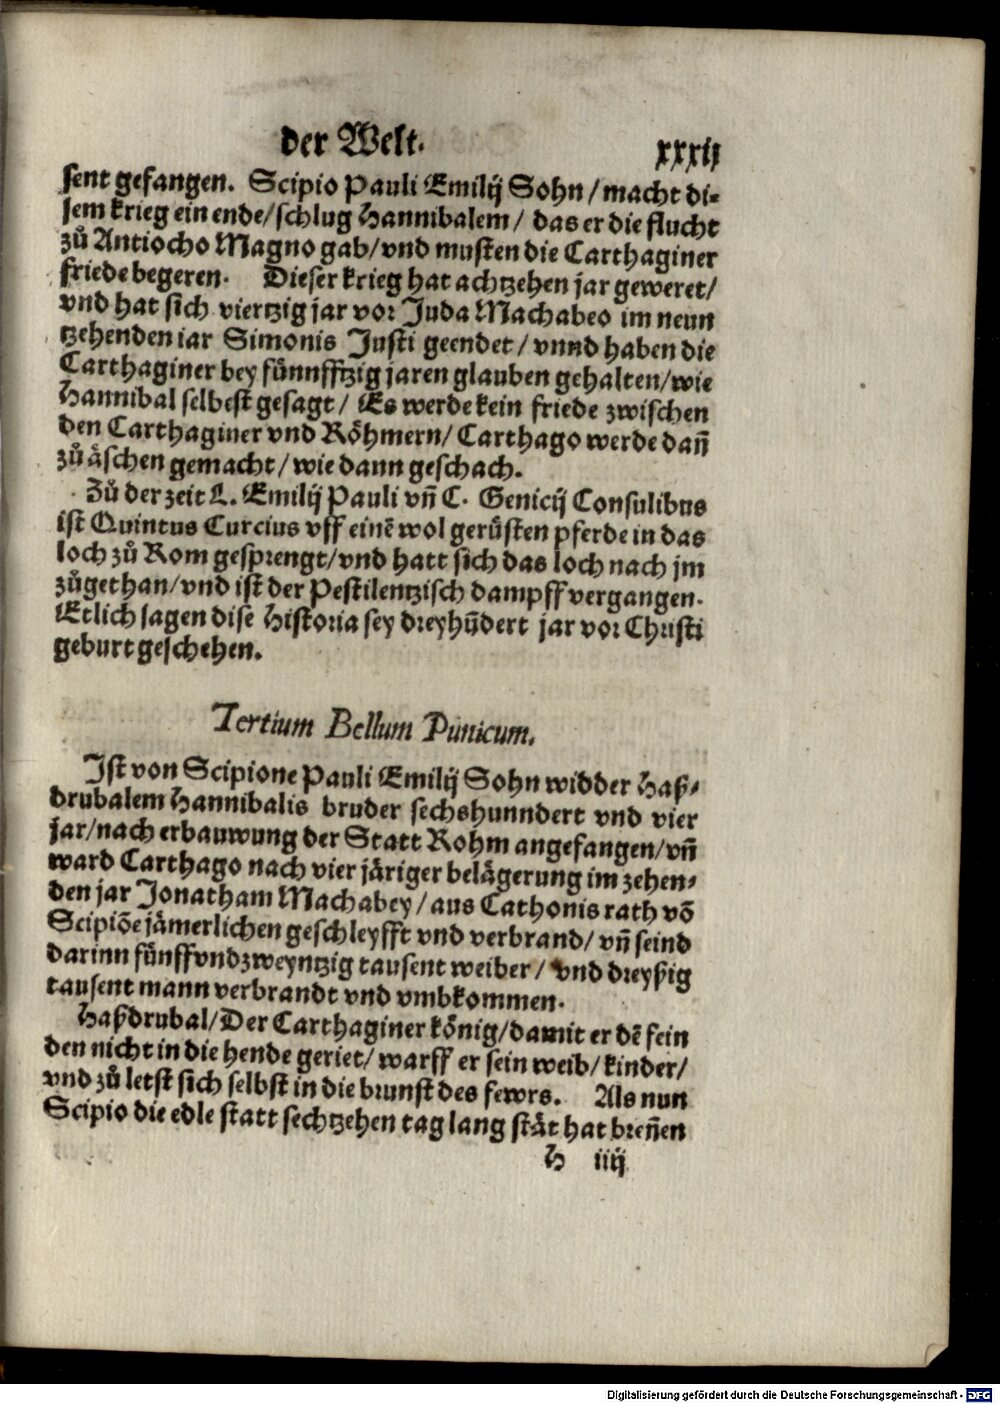 der Welt. xxxij
sent gefangen. Scipio Pauli Emilij Sohn / macht di-
sem krieg ein ende / schlug Hannibalem / das er die flucht
zů Antiocho Magno gab / vnd musten die Carthaginer
friede begeren. Dieser krieg hat achtzehen jar geweret /
vnd hat sich viertzig jar vor Juda Machabeo im neun
tzehenden iar Simonis Justi geendet / vnnd haben die
Carthaginer bey fünnfftzig jaren glauben gehalten / wie
Hannibal selbest gesagt / Es werde kein friede zwischen
den Carthaginer vnd Röhmern / Carthago werde dañ
zů äschen gemacht / wie dann geschach.
Zů der zeit L. Emilij Pauli vñ C. Genicij Consulibus
ist Quintus Curcius vff einẽ wol gerüsten pferde in das
loch zů Rom gesprengt / vnd hatt sich das loch nach jm
zůgethan / vnd ist der Pestilentzisch dampff vergangen.
Etlich sagen dise Historia sey dreyhũdert jar vor Christi
geburt geschehen.
Tertium Bellum Punicum.
Ist von Scipione Pauli Emilij Sohn widder Haß-
drubalem Hannibalis bruder sechshunndert vnd vier
jar / nach erbauwung der Statt Rohm angefangen / vñ
ward Carthago nach vier järiger belägerung im zehen-
den jar Jonatham Machabey / aus Cathonis rath võ
Scipiõe jämerlichen geschleyfft vnd verbrand / vñ seind
darinn fünffvndzweyntzig tausent weiber / vnd dreyßig
tausent mann verbrandt vnd vmbkommen.
Haßdrubal / Der Carthaginer könig / damit er dẽ fein
den nicht in die hende geriet / warff er sein weib / kinder /
vnd zů letst sich selbst in die brunst des fewrs. Als nun
Scipio die edle statt sechtzehen tag lang stät hat breñen
H iiij
Digitalisierung gefördert durch die Deutsche Forschungsgemeinschaft - DFG